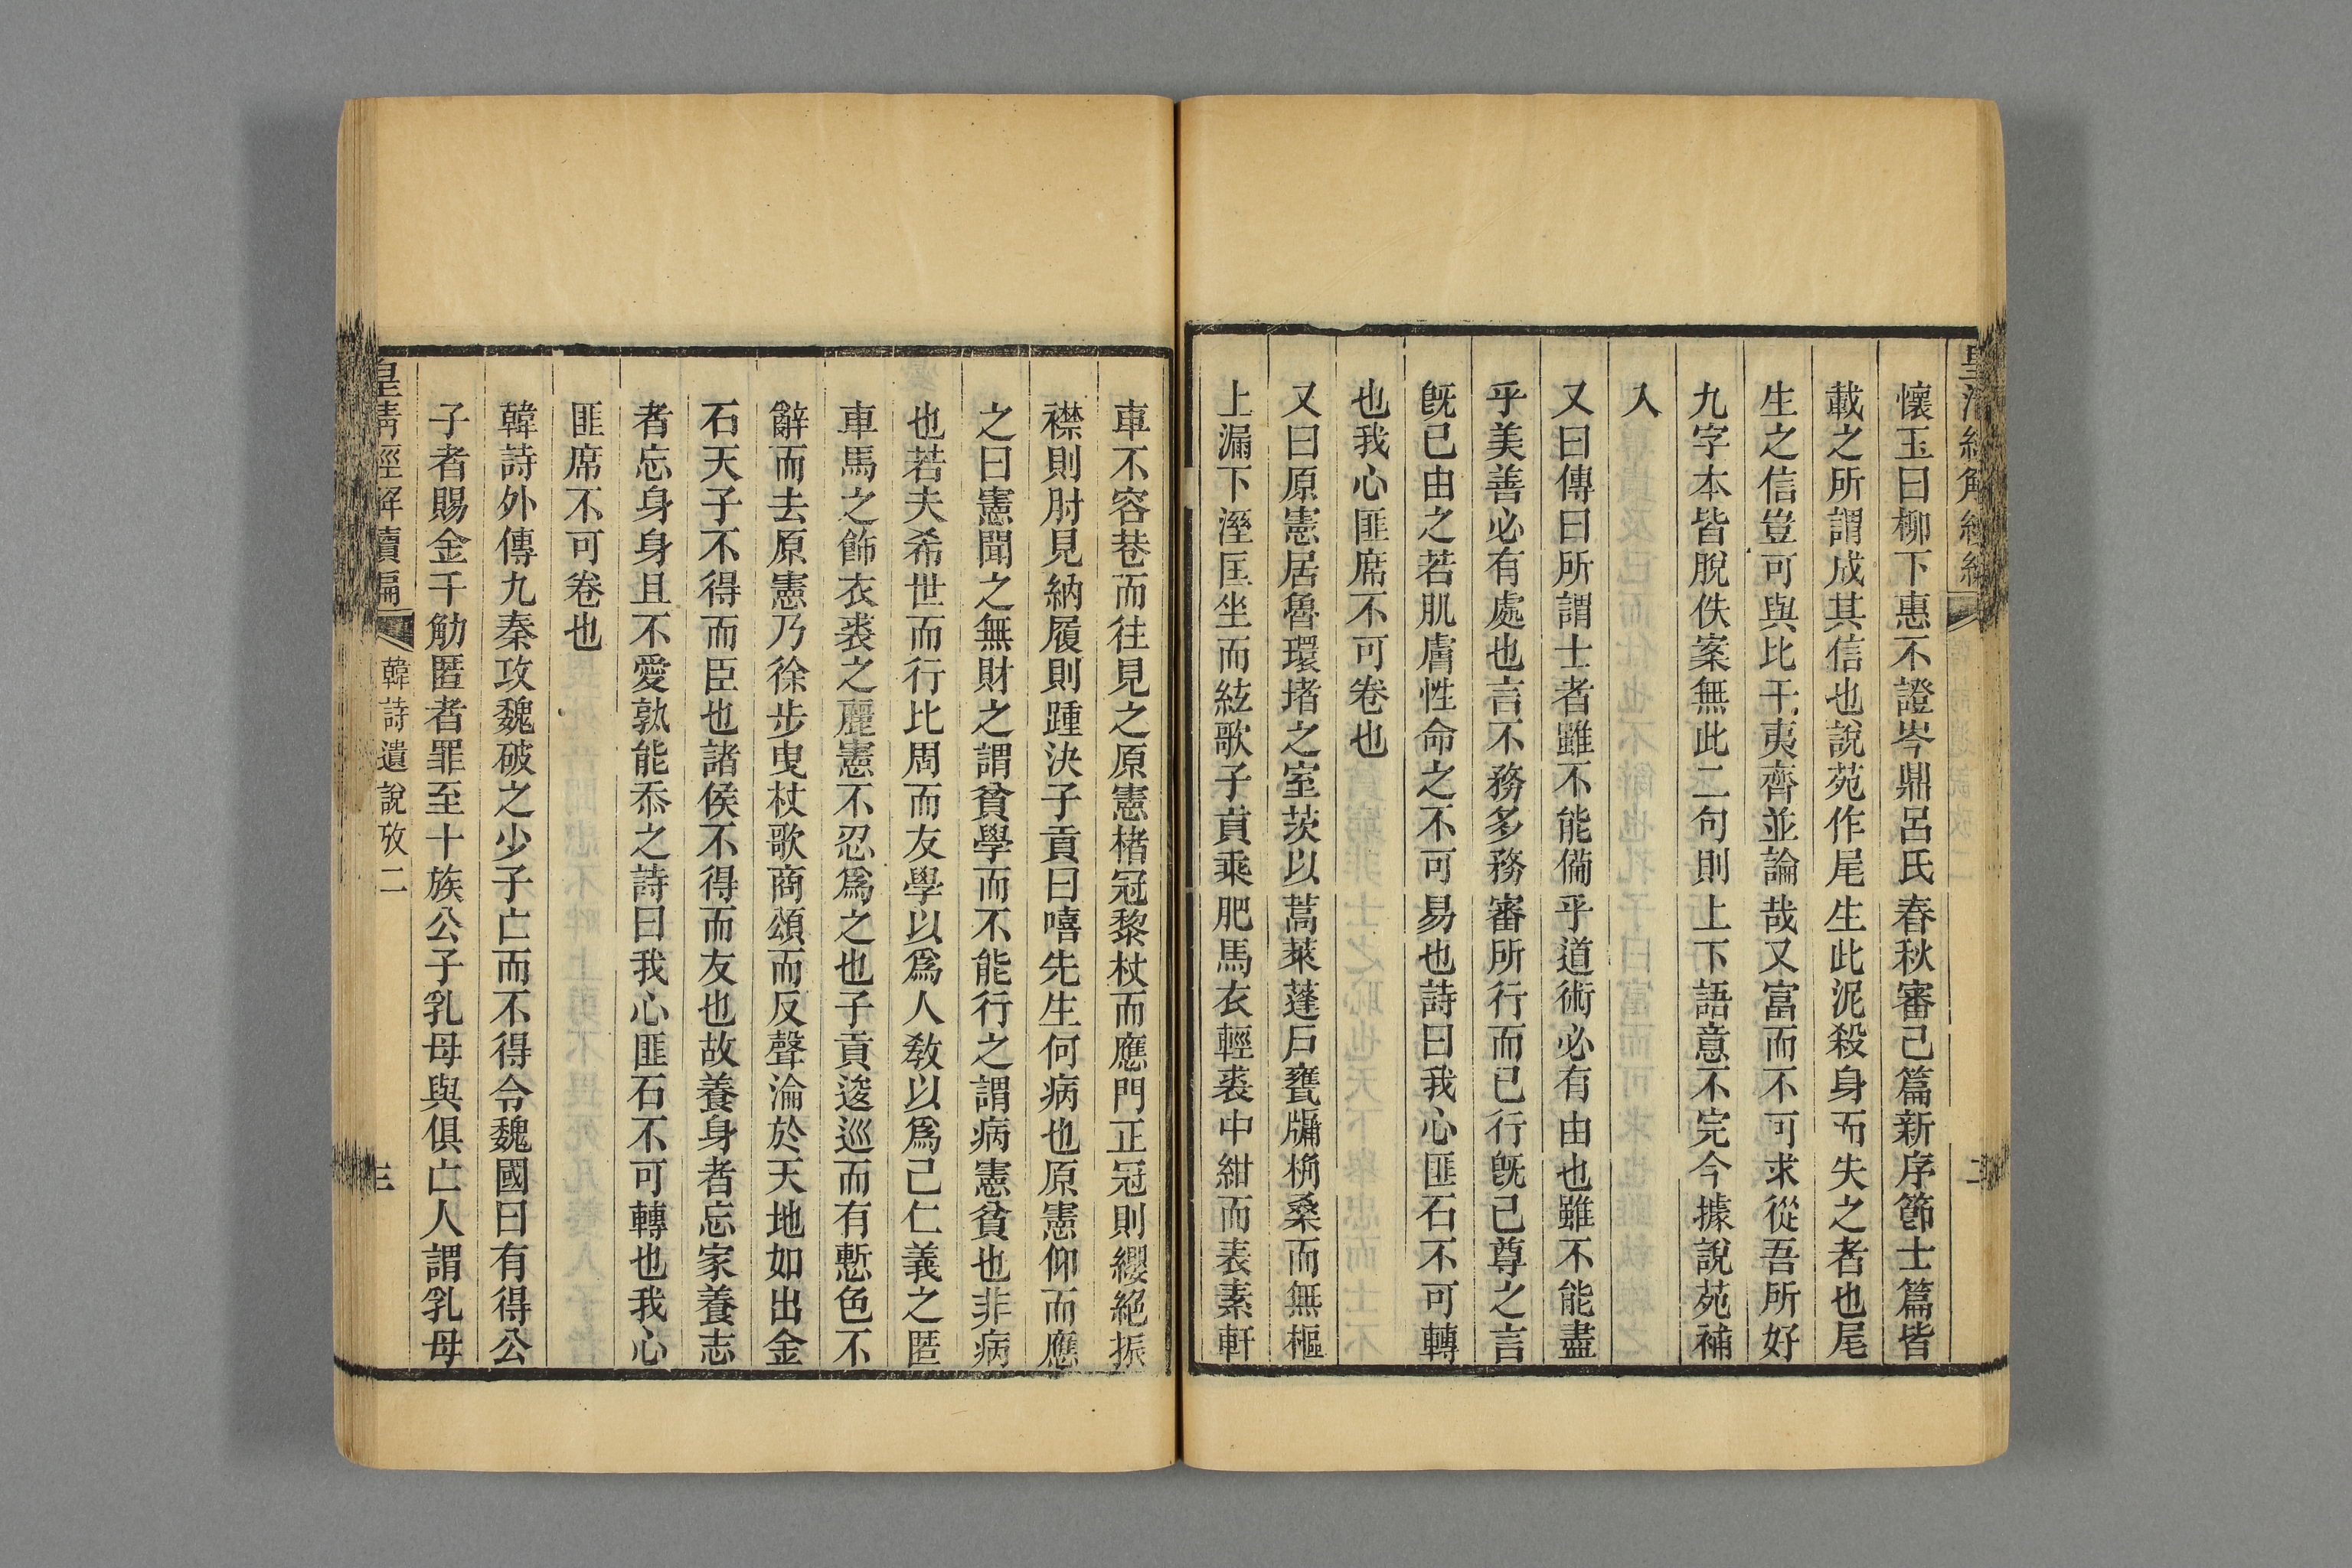 懷玉曰柳下惠不證岑鼎呂氏春秋審己篇新序節士篇皆
載之所謂成其信也說苑作尾生此泥殺身而失之者也尾
生之信豈可與比干夷齊並論哉又富而不可求從吾所好
九字本皆脫佚案無此二句則上下語意不完今據說苑補
入
又曰傳曰所謂士者雖不能備乎道術必有由也雖不能盡
乎美善必有處也言不務多務審所行而已行旣已尊之言
旣已由之若肌膚性命之不可易也詩曰我心匪石不可轉
也我心匪席不可卷也
又曰原憲居魯環堵之室茨以蒿萊蓬戶甕牖桷桑而無樞
上漏下溼匡坐而絃歌子貢乘肥馬衣輕裘中紺而表素軒
車不容巷而往見之原憲楮冠黎杖而應門正冠則纓絕振
襟則肘見納履則踵決子貢曰嘻先生何病也原憲仰而應
之曰憲聞之無財之謂貧學而不能行之謂病憲貧也非病
也若夫希世而行比周而友學以爲人敎以爲己仁義之匿
車馬之飾衣裘之麗憲不忍爲之也子貢逡巡而有慙色不
辭而去原憲乃徐步曳杖歌商頌而反聲淪於天地如出金
石天子不得而臣也諸侯不得而友也故養身者忘家養志
者忘身身且不愛孰能忝之詩曰我心匪石不可轉也我心
匪席不可卷也
韓詩外傳九秦攻魏破之少子亡而不得令魏國曰有得公
子者賜金千觔匿者罪至十族公子乳母與俱亡人謂乳母
皇淸經解續編
韓詩遺說攷二
三